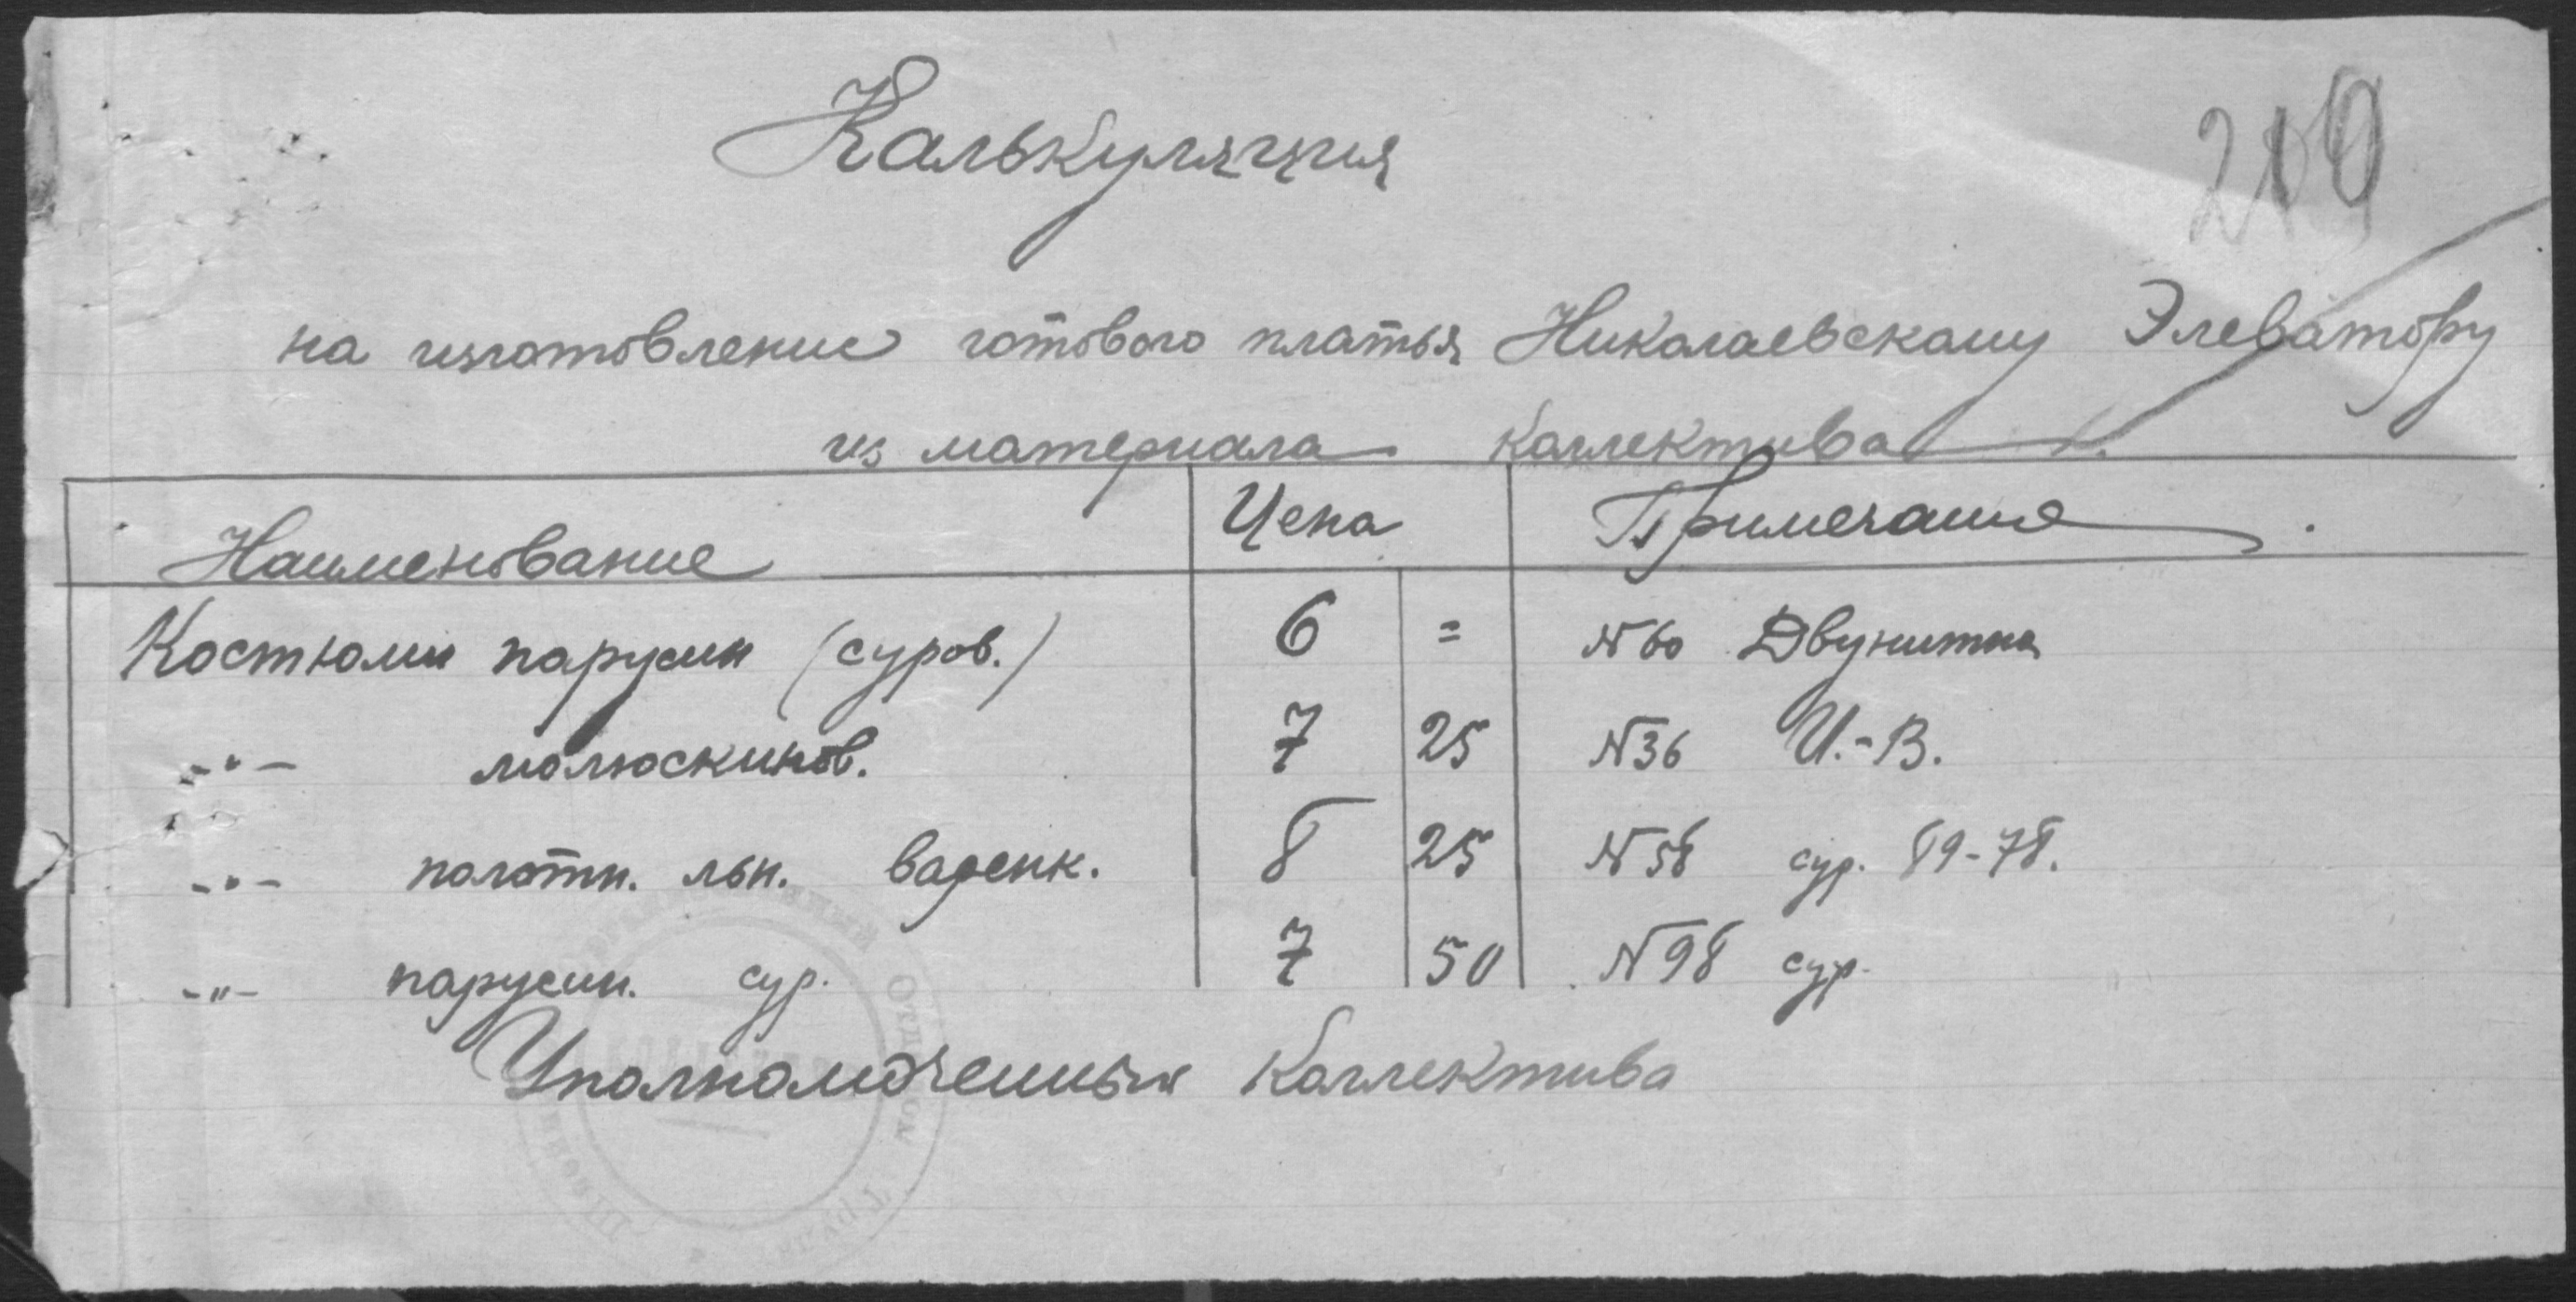 Калькуляция
209
на изготовление готового платья Николаевскому Элеватору
из материала коллектива
Наименование Цена Примечание
Костюмы парусин (суров.) 6 = №60 Двунитка
-"- молюскинов. 7 25 №36 И.-В.
-"- полотн. льн. варенк. 8 25 №58 сур. 89-78.
-"- парусин. сур. 7 50 №98 сур.
Уполномоченный Коллектива